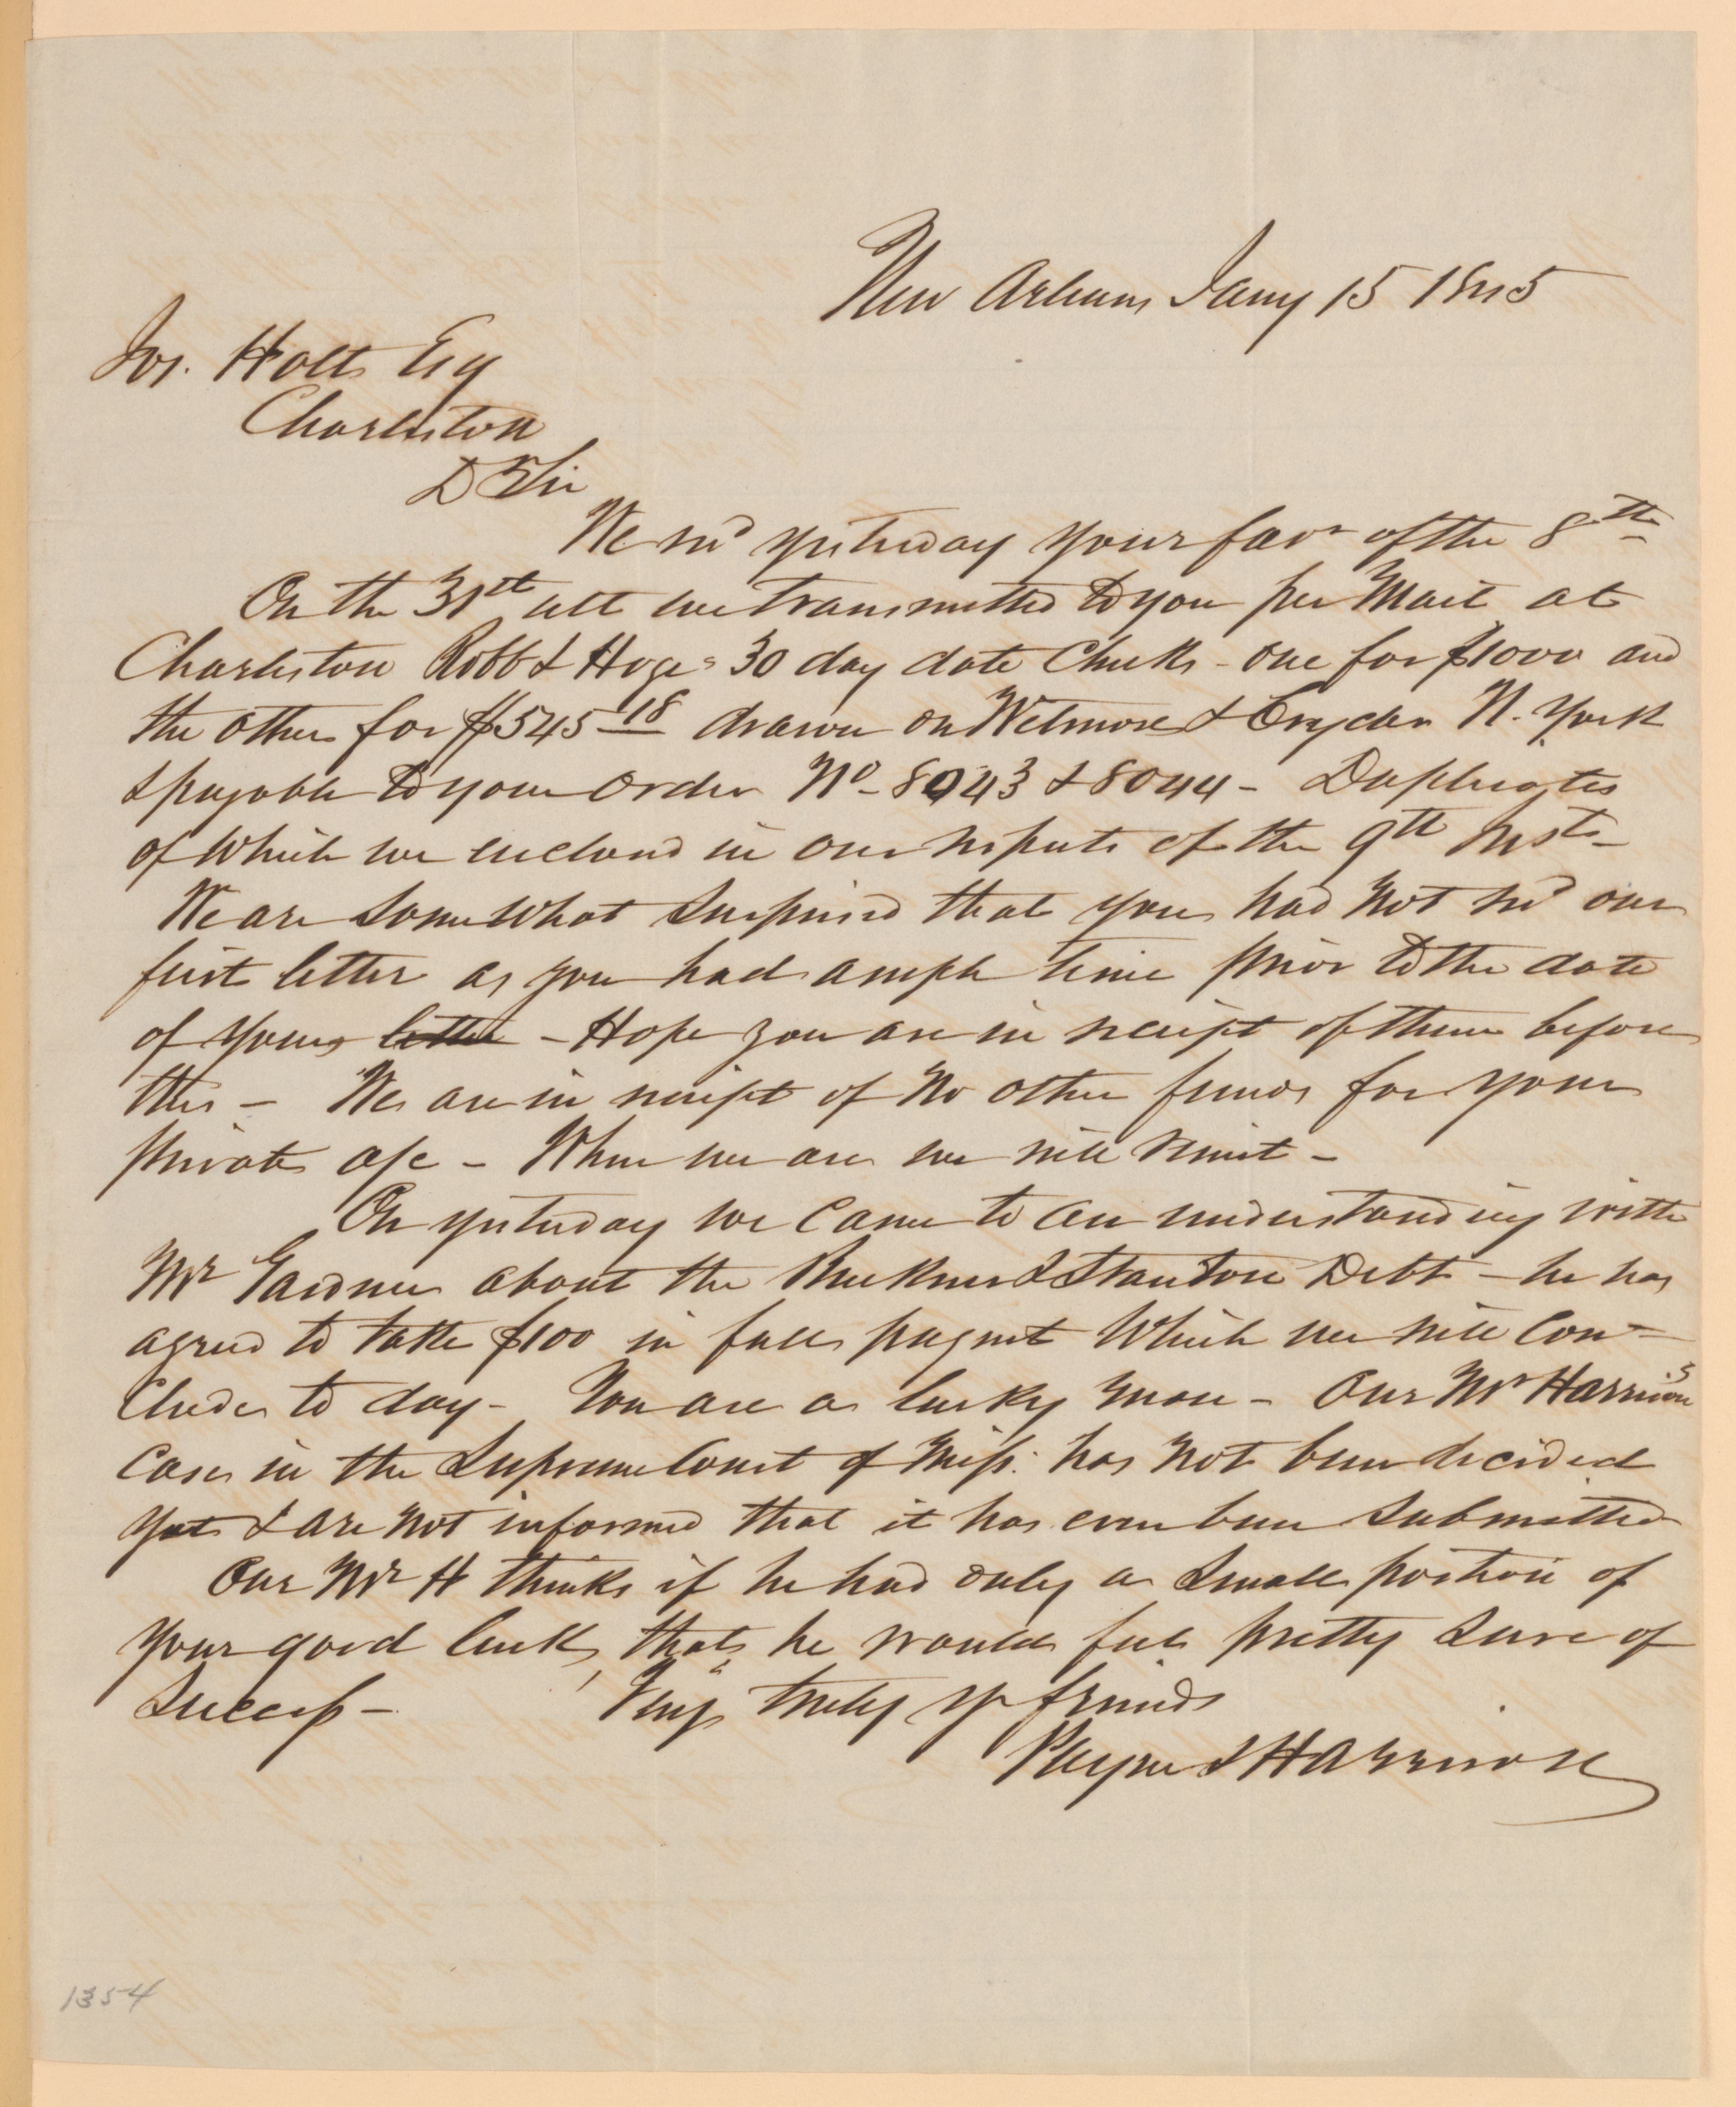 New Orleans Jany 15 1845
Jos. Holt Esq
Charleston
D Sir
We recd yesterday your favr of the 8th
On the 31st ult we transmitted to you per Mail at
Charleston Robb & Hoge's 30 day date Checks - one for $1000 and
the other for $545 18 drawn on Wetmore & Cryder N. York
& payable to your order No - 8043 & 8044 - Duplicates
of which we enclosed in our respects of the 9th Inst -
We are somewhat surprised that you had not recd our
first letter as you had ample time prior to the date
of yours letter - Hope you are in receipt of them before
this - We are in receipt of No other funds for your
private a/c - When we are we will remit -
On yesterday we came to an understanding with
Mr Gardner about the Buckner & Stanton Debt - he has
agreed to take $100 in full paymt which we will con-
clude to day - You are a lucky man - Our Mr Harrison's
case in the Supreme Court of Miss. has not been decided
yet & are not informed that it has even been submitted
Our Mr H thinks if he had only a small portion of
your good luck, that he would feel pretty sure of
success -
Very truly yr friends
Payne & Harrison
1354